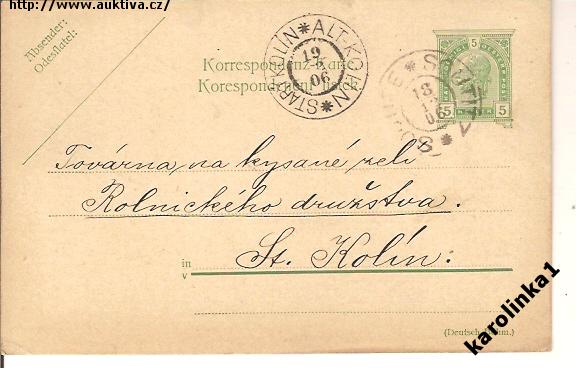 http://www.auktiva.cz/
Absender:
Odesílatel:
Korrespondenz-Karte.
Korespondenční lístek.
STARÝ KOLÍN * ALT-KOLIN *
19
06
5
5 5
18
06
Továrna na kysané zelí
Rolnického družstva.
in
v
St. Kolín:
(Deutsch-böhm.)
karolinka1